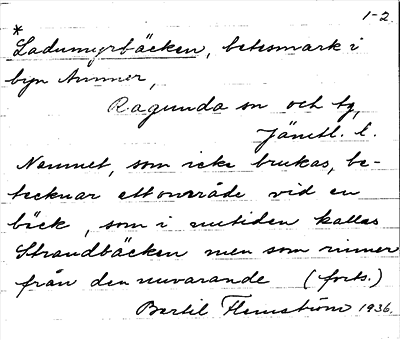 1-2.
*
Ladumyrbäcken, betesmark i
byn Ammer,
Ragunda sn och tg,
Jämtl. l.
Namnet, som icke brukas, be-
tecknar ett område vid en
bäck, som i nutiden kallas
Strandbäcken men som rinner
från den nuvarande (forts.)
Bertil Flemström 1936.